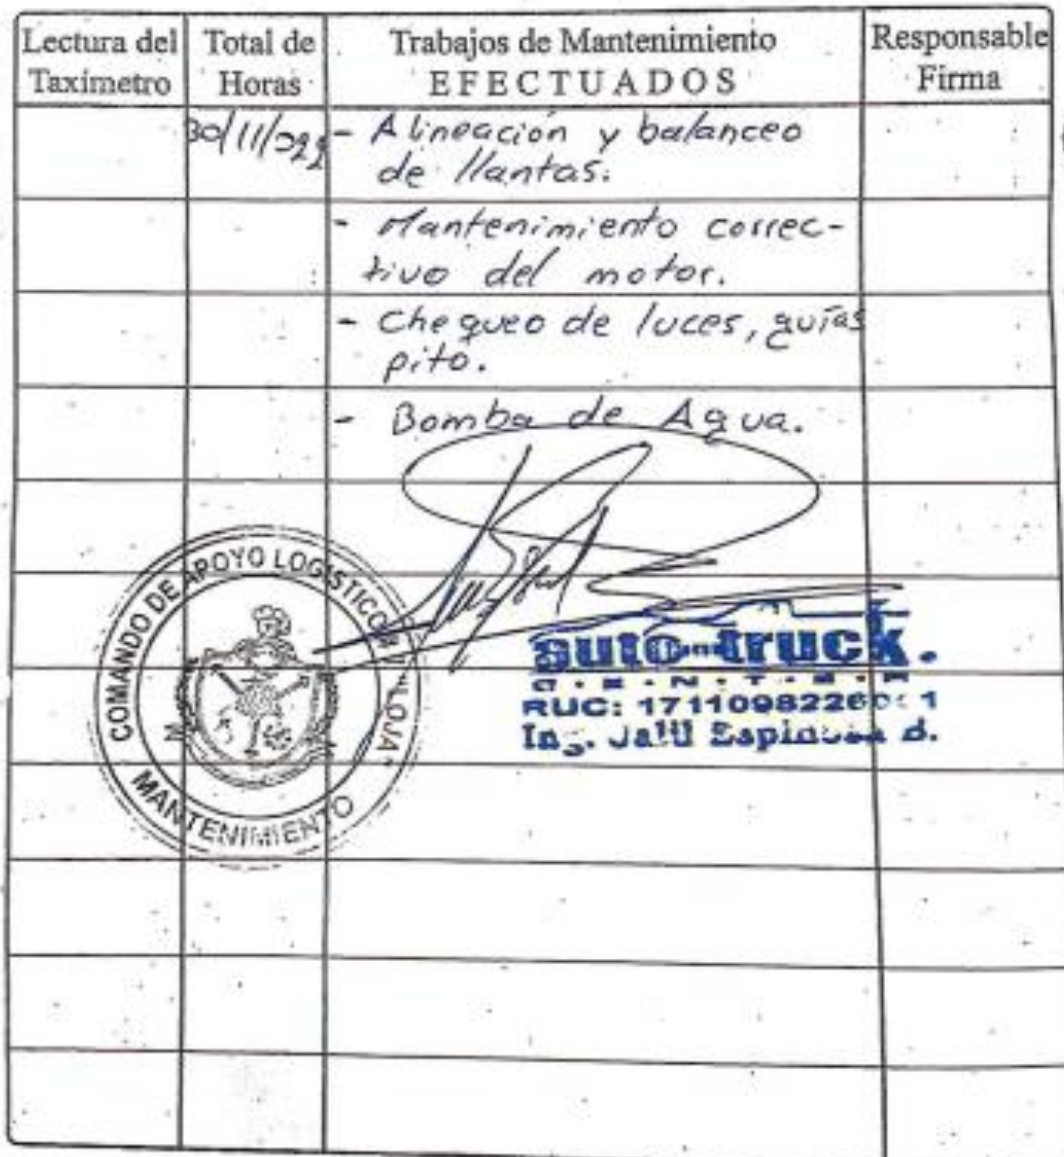 Lectura del Taxímetro
Total de Horas
Trabajos de Mantenimiento EFECTUADOS
Responsable Firma
30/11/022
- Alineación y balanceo
de llantas.
- Mantenimiento correc-
tivo del motor.
- Chequeo de luces, guías
pito.
- Bomba de Agua.
COMANDO DE APOYO LOGISTICO
LOJA
MANTENIMIENTO
auto-truck.
C·E·N·T·E·R
RUC: 1711098226001
Ing. Espinosa B.